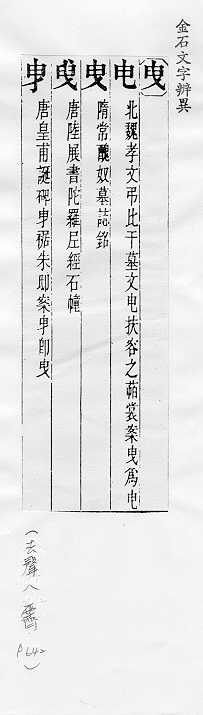 金石文字辨異
曳
曳 北魏孝文弔比干墓文曳扶容之葩裳案曳為曳
曳 隋常醜奴墓誌銘
曳 唐陸展書陀羅尼經石幢
曳 唐皇甫誕碑曳裾朱邸案曳即曳
(去聲八霽
P642)